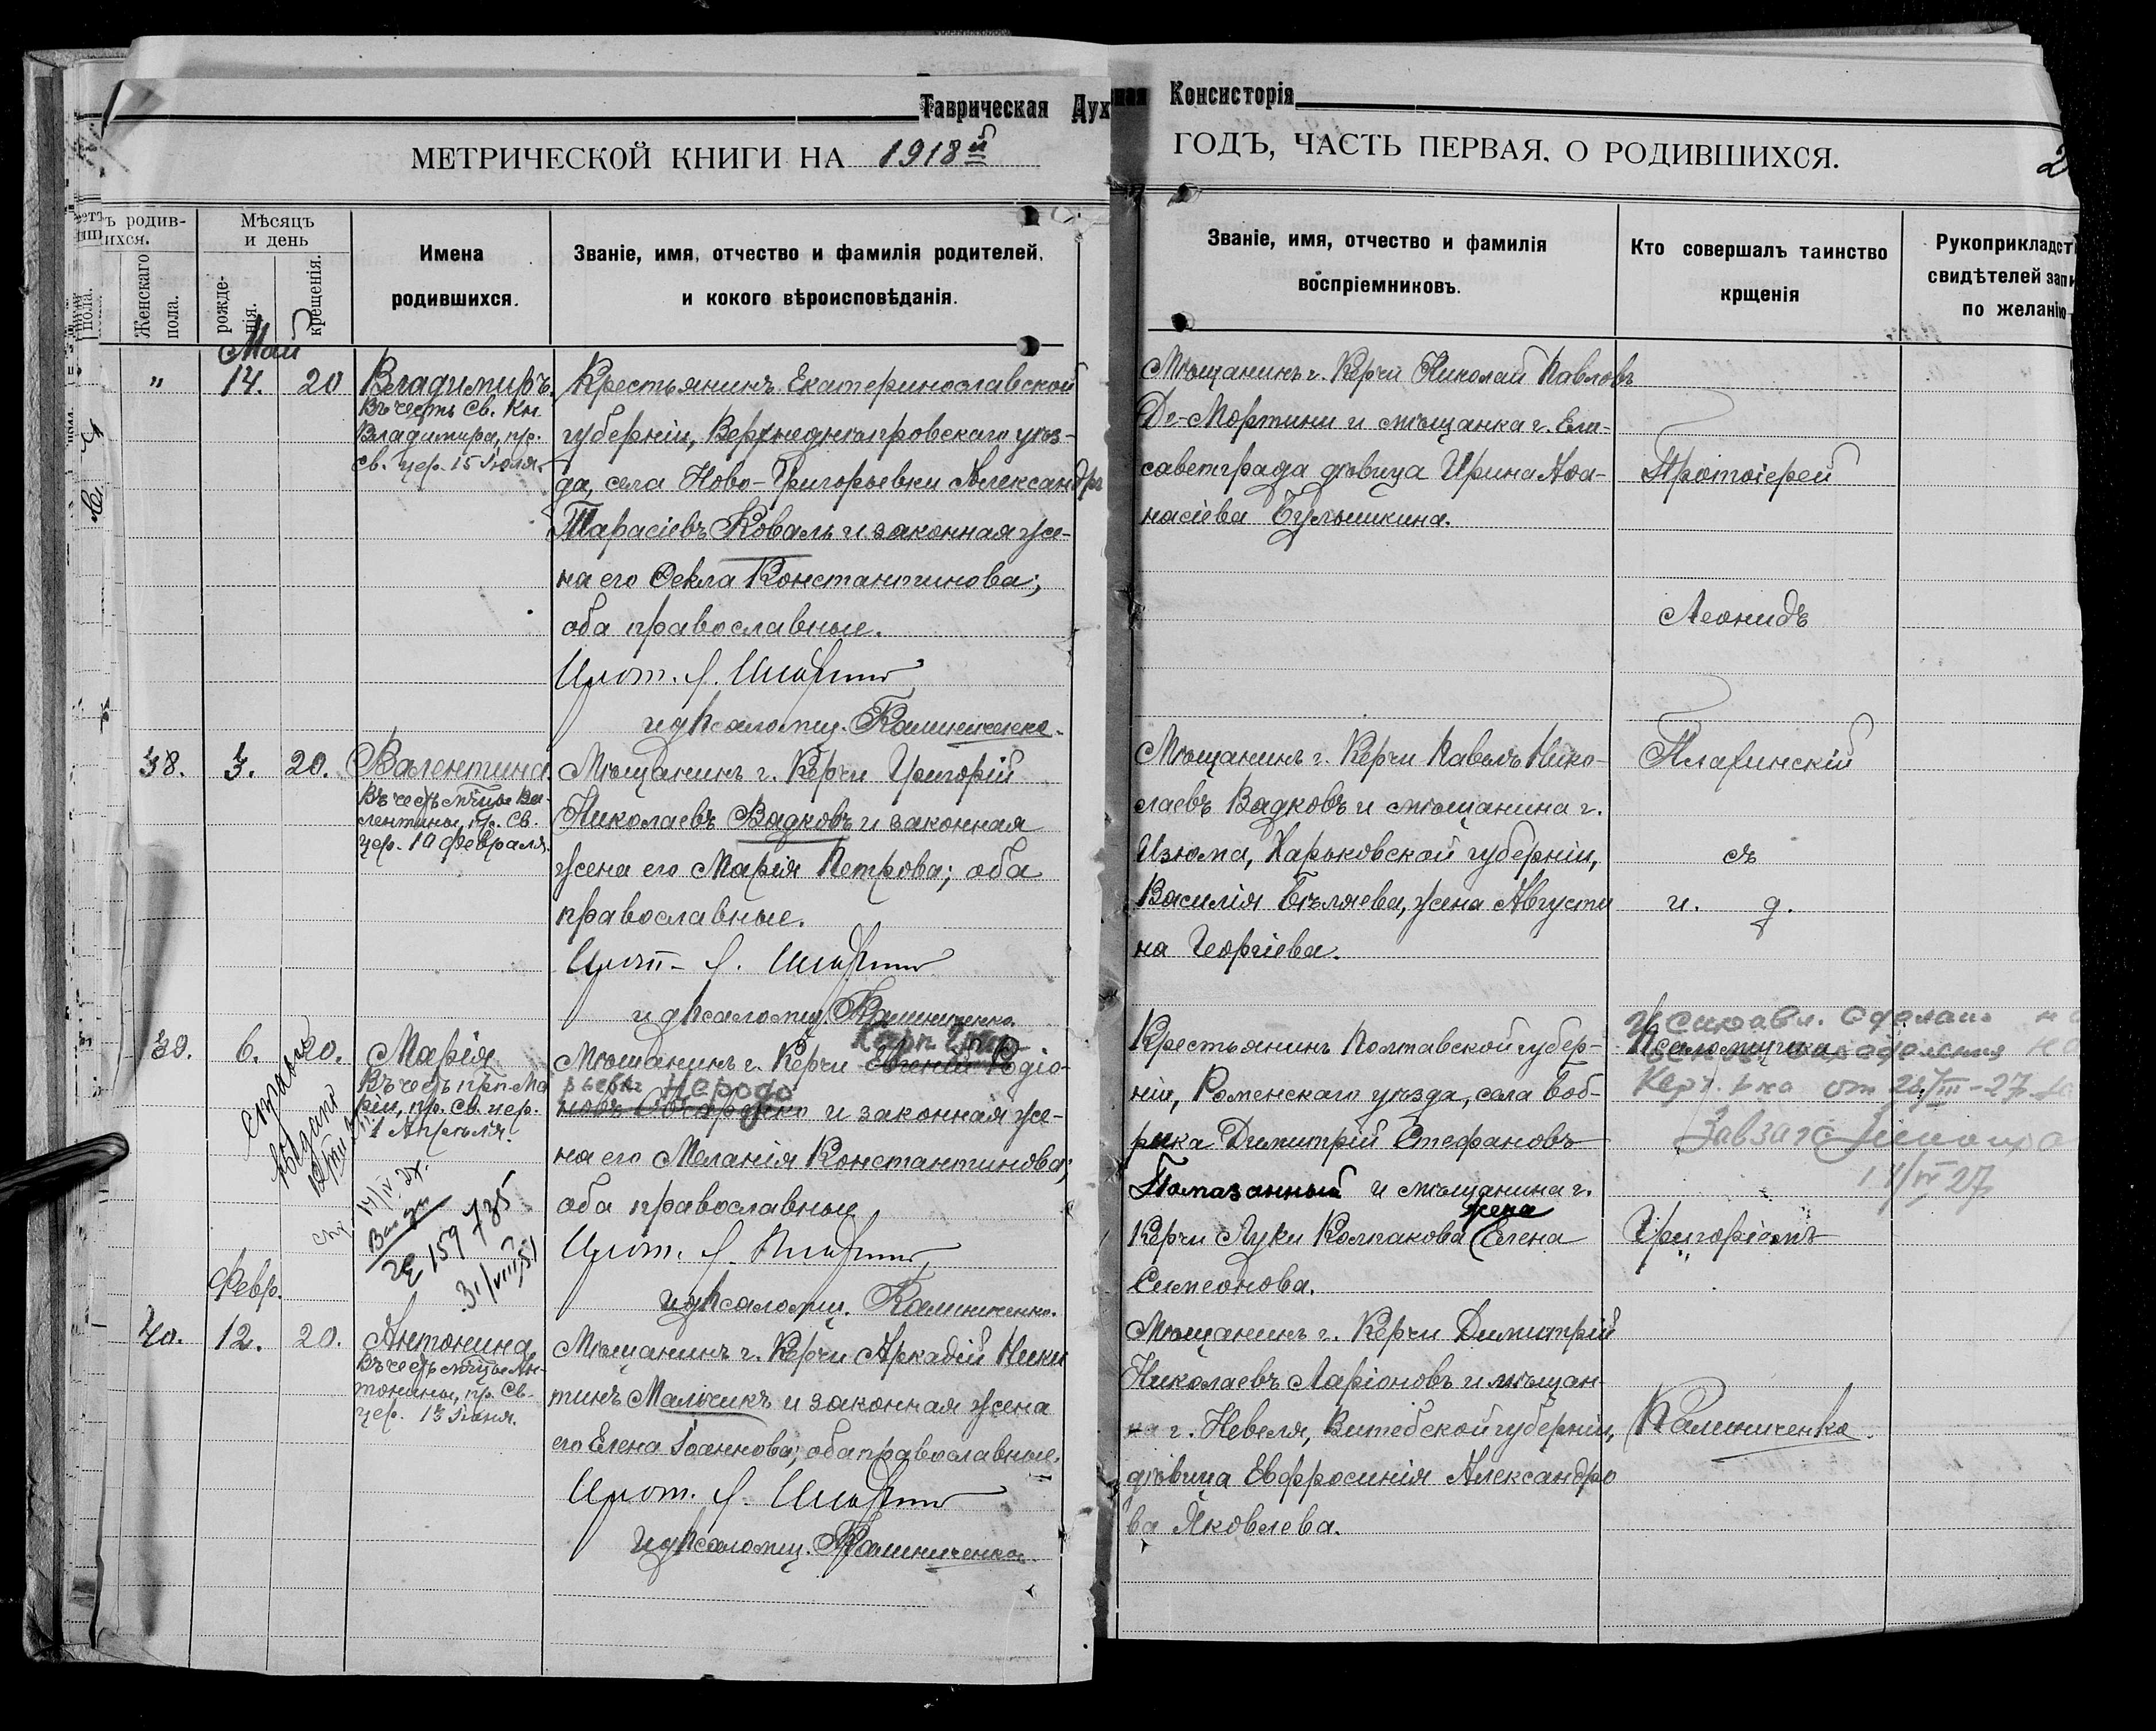 Таврическая Духовная Консисторія
МЕТРИЧЕСКОЙ КНИГИ НА 1918й
ГОДЪ, ЧАСТЬ ПЕРВАЯ, О РОДИВШИХСЯ.
Женскаго пола.
Мѣсяцъ и день
рожде-
нія.
крещенія.
Имена
родившихся.
Званіе, имя, отчество и фамилія родителей,
и кокого вѣроисповѣданія.
Званіе, имя, отчество и фамилія
воспріемниковъ.
Кто совершалъ таинство
крщенія
Рукоприкладст
свидѣтелей запи
по желанію
Май
" 14. 20
Владимиръ.
Въ честь Св. Кн.
Владимира, пр.
св. цер. 15 Іюля.
Крестьянинъ Екатеринославской
губерніи, Верхнеднѣпровскаго уѣз-
да, села Ново-Григорьевки Александръ
Тарасіевъ Коваль и законная же-
на его Ѳекла Константинова;
оба православные.
Прот. Л.
псаломщ. Калиниченко.
Мѣщанинъ г. Керчи Николай Павловъ
Де-Мортини и мѣщанка г. Ели-
саветграда дѣвица Ирина Аѳа-
насіева
Протоіерей
Леонидъ
38. 3. 20.
Валентина.
Въ честь мчцы Ва-
лентины, пр. Св.
цер. 10 Февраля.
Мѣщанинъ г. Керчи Григорій
Николаевъ Вадковъ и законная
жена его Марія Петрова; оба
православные.
Прот. Л.
псаломщ. Калиниченко.
Мѣщанинъ г. Керчи Павелъ Нико-
лаевъ Вадковъ и мѣщанина г.
Изюма, Харьковской губерніи,
Василія Бѣляева, жена Августи
на Георгіева.
съ
и. д.
39. 6. 20.
Марія
Въ честь прп. Ма
ріи, пр. Св. цер.
1 Апрѣля.
Мѣщанинъ г. Керчи Евгеній Родіо-
новъ и законная же-
на его Меланія Константинова;
оба православные
Прот. Л.
псаломщ. Калиниченко.
выдано
14/IV 27.
159735
31/VIII 51
Крестьянинъ Полтавской губер-
ніи, Роменскаго уѣзда, села Боб-
рика Димитрій Стефановъ
Помазанный и мѣщанина г.
жена
Керчи Луки Колпакова Елена
Симеонова.
Псаломщика
от 28/III-27
Завзагс
14/IV 27
Григоріемъ
Февр.
40. 12. 20.
Антонина
Въ честь мчцы Ан-
тонины, пр. Св.
цер. 13 Іюня.
Мѣщанинъ г. Керчи Аркадій Ники
тинъ Мальчикъ и законная жена
его Елена Іоаннова; оба православные.
Прот. Л.
псаломщ. Калиниченко.
Мѣщанинъ г. Керчи Димитрій
Николаевъ Ларіоновъ и мѣщан-
ка г. Невеля, Витебской губерніи,
дѣвица Евфросинія Александро
ва Яковлева.
Калиниченко.